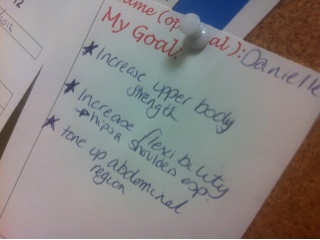 12
Name (op al): Danielle
My Goal
★ Increase upper body
strength
★ Increase flexibility
→ hips & shoulders esp.
★ tone up abdominal
region